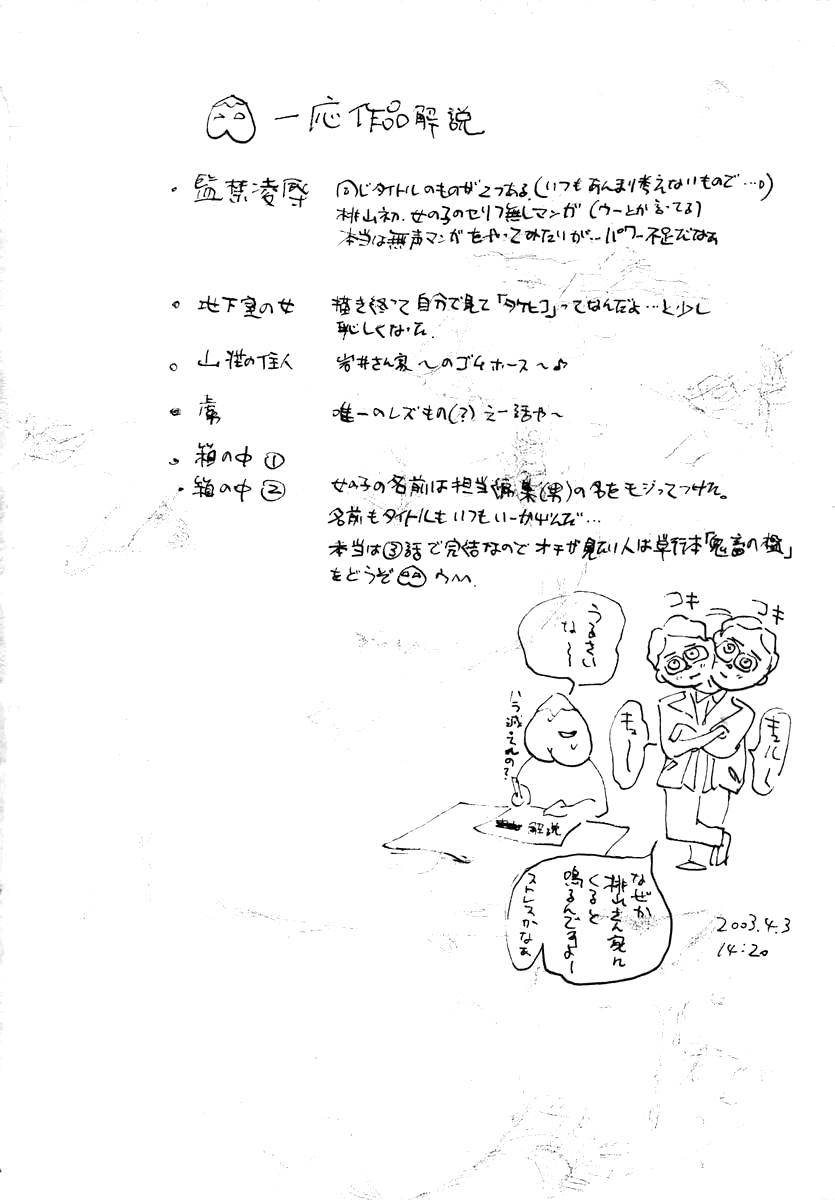 一応作品解説
・監禁凌辱 同じタイトルのものが2つある。(いつもあんまり考えないもので…。)
桃山初、女の子のセリフ無しマンガ(ウーとか言ってる)
本当は無声マンガをやってみたいが…パワー不足だなぁ
・地下室の女 描き終って自分で見て「タケヒコ」ってなんだよ…と少し
恥しくなった。
・山荘の住人 岩井さん家〜のゴムホース〜♪
・虜 唯一のレズもの(?)えー話や〜
・箱の中①
・箱の中② 女の子の名前は担当編集(男)の名をモジってつけた。
名前もタイトルもいつもいーかげんだ…
本当は③話で完結なのでオチが見たい人は単行本「鬼畜の檻」
をどうぞ
コキ
コキ
うるさい
な〜
ハラ減ってんの?
キュー
キュルル
解説
なぜか
桃山さん家に
くると
鳴るんですよー
ストレスかなぁ
2003.4.3
14:20